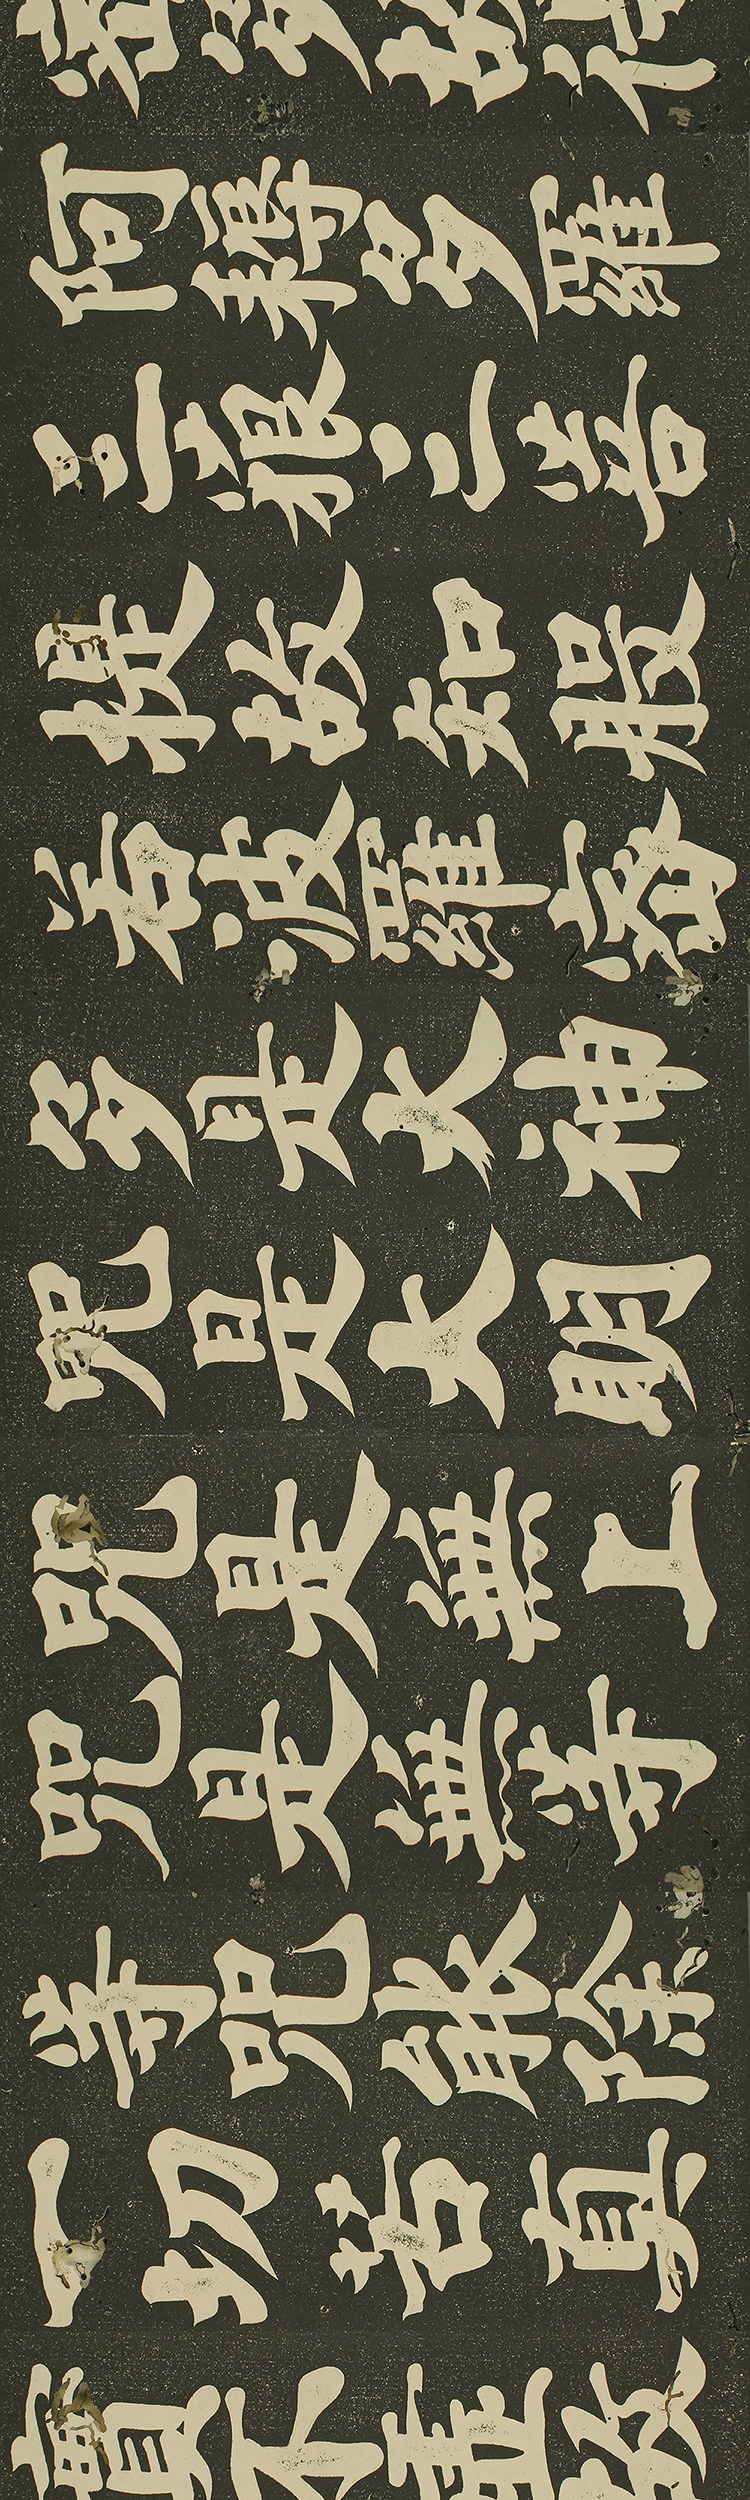 密多故得
阿耨多羅
三藐三菩
提故知般
若波羅密
多是大神
咒是大明
咒是無上
咒是無等
等咒能除
一切苦真
實不虛故